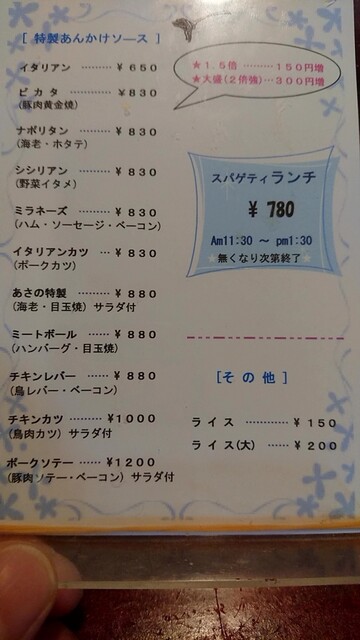 [ 特製あんかけソース ]
イタリアン ········· ¥ 650
ピカタ ········· ¥830
(豚肉黄金焼)
ナポリタン ········· ¥ 830
(海老・ホタテ)
シシリアン ········· ¥ 830
(野菜イタメ)
ミラネーズ ········· ¥ 830
(ハム・ソーセージ・ベーコン)
イタリアンカツ ··· ¥ 830
(ポークカツ)
あさの特製 ········· ¥ 880
(海老・目玉焼) サラダ付
ミートボール ······ ¥ 880
(ハンバーグ・目玉焼)
チキンレバー ······ ¥ 880
(鳥レバー・ベーコン)
チキンカツ ········· ¥1000
(鳥肉カツ) サラダ付
ポークソテー ······ ¥1200
(豚肉ソテー・ベーコン) サラダ付
★1.5倍 ············ 150円増
★大盛(2倍強)···300円増
スパゲティランチ
¥ 780
Am11:30 ～ pm1:30
★無くなり次第終了★
[その他]
ライス ············ ¥ 150
ライス(大) ······ ¥ 200